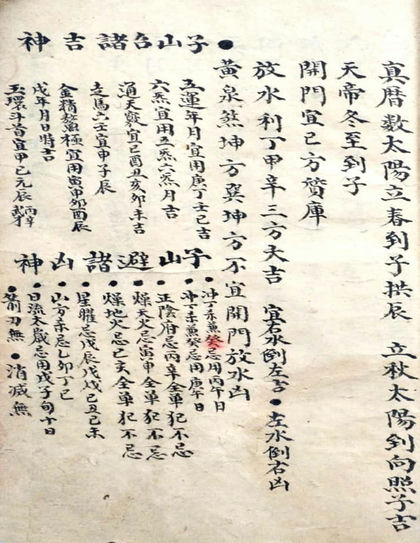 真曆数太陽立春到子拱辰　立秋太陽到向照子吉
天帝冬至到子
開門宜巳方贊庫
放水利丁甲辛三方大吉　宜右水倒左吉●左水倒右凶
黄泉煞坤方巽坤方不宜開門放水凶
●子山台諸吉神
五運年月宜用庚丁壬巳吉
六炁宜用五炁六炁月吉
通天竅宜巳酉丑亥卯未吉
走馬六壬宜申子辰
金精鰲極宜用寅甲卯酉辰
戊年月日時吉
玉環斗首宜甲巳元辰
子山避諸凶神
●沖丁未兼癸忌用丙午日
●沖丁未兼癸忌用庚午日
●正陰府忌丙辛全單犯不忌
●燥天火忌寅甲全單犯不忌
●燥地火忌巳亥全單犯不忌
●星曜忌戊辰戊戌己丑己未
●山方未忌乙卯丁巳
●日流太歲忌用戊子旬十日
●箭刃無●消滅無